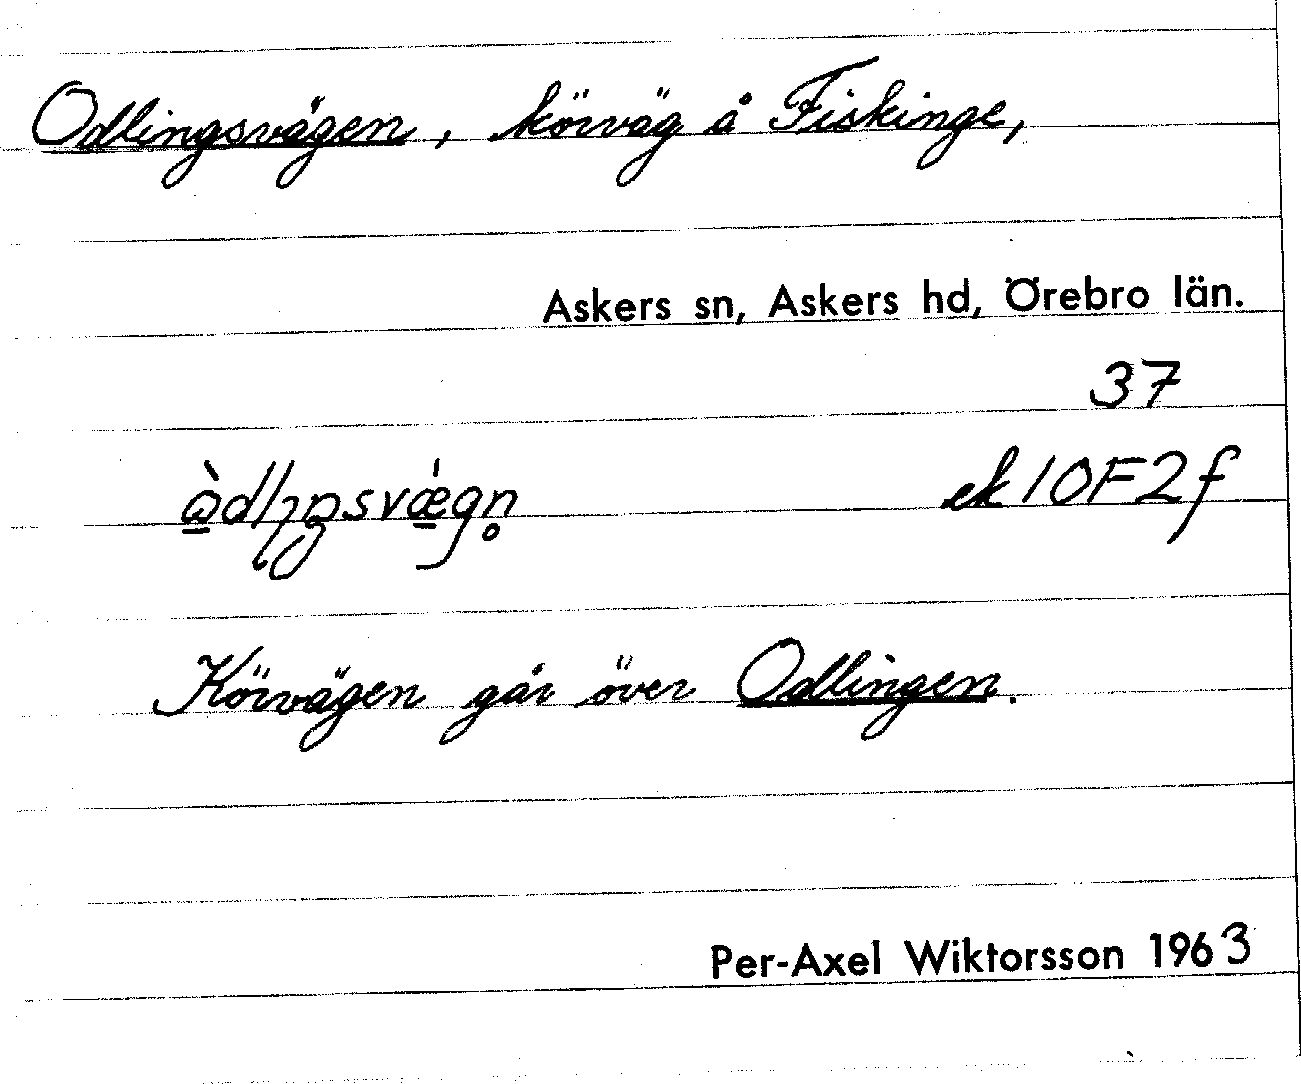 Odlingsvägen, körväg å Fiskinge,
Askers sn, Askers hd, Örebro län.
37
ek 10F2f
Körvägen går över Odlingen.
Per-Axel Wiktorsson 1963